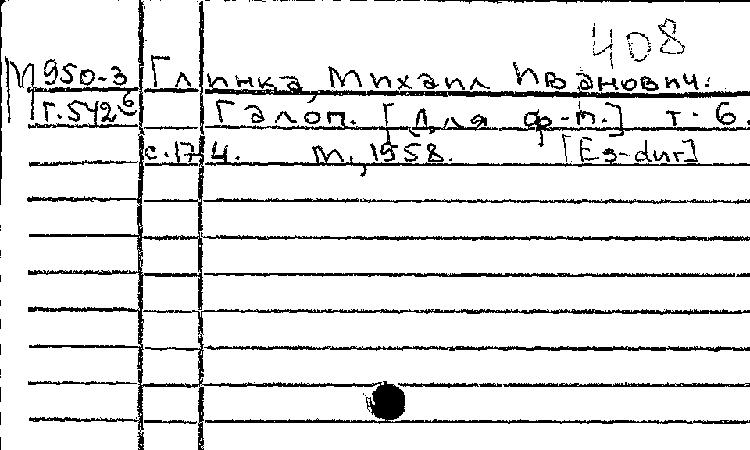 408
М950-3 Глинка, Михаил Иванович.
Г.542б Галоп. [Для ф-п.] т. 6.
с.174. М., 1958. [Es-dur]